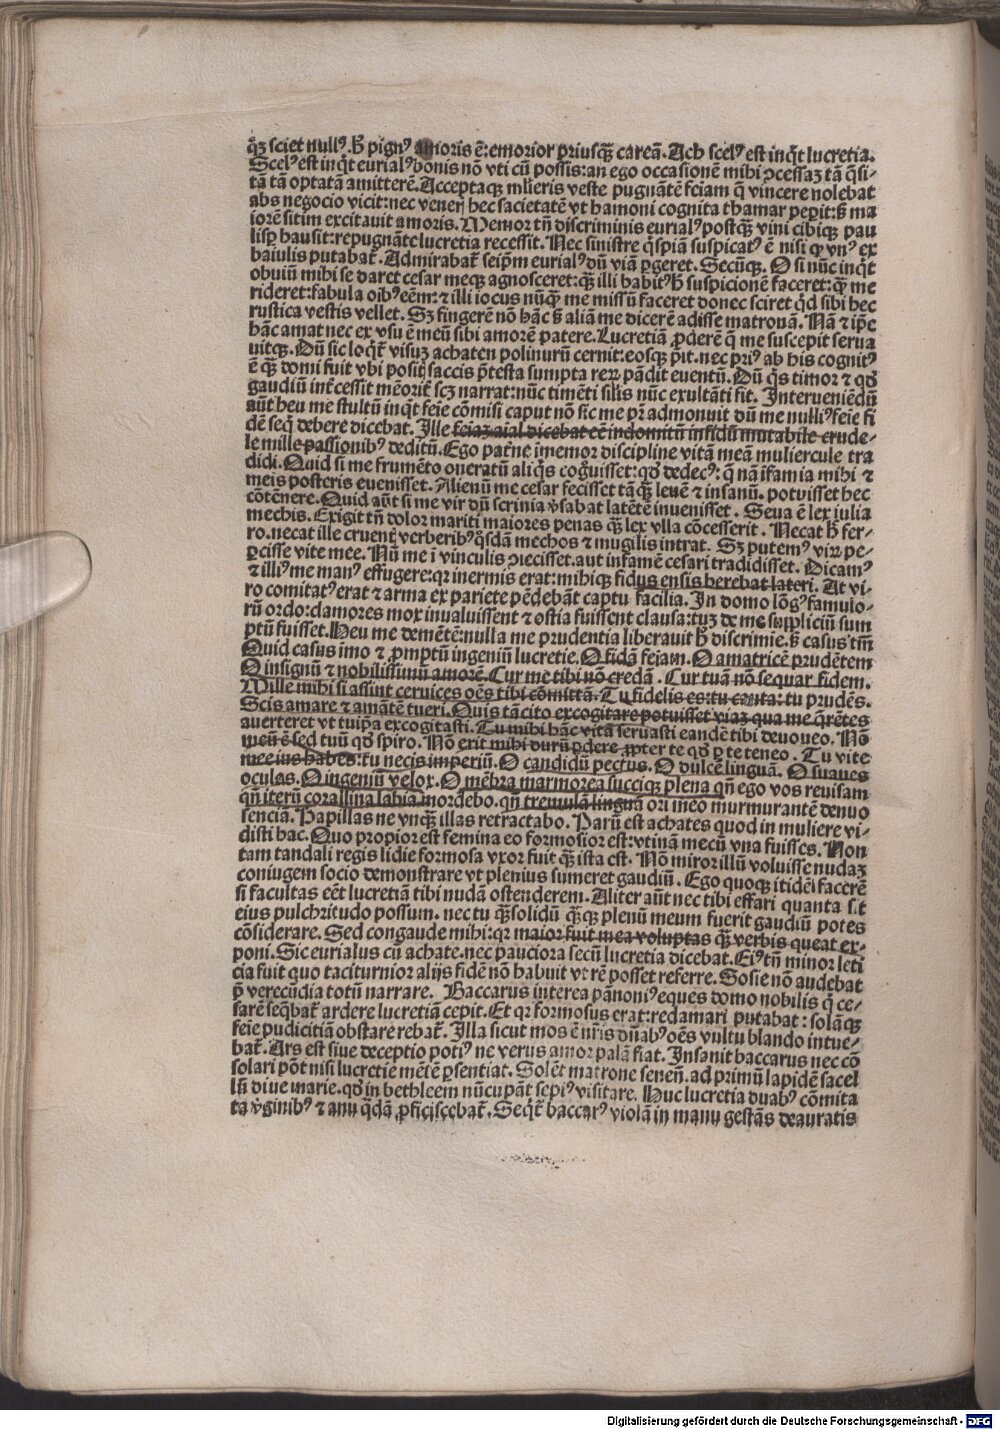 q̃ꝫ sciet nullꝰ. h̵ pignꝰ amoris ē: emorior priusq̄ꝫ careā. Ach scelꝰ est inq̇t lucretia.
Scelꝰ est inq̇t eurialꝰ bonis nō vti cū possis: an ego occasionē mihi ꝯcessaꝫ tā q̄si-
tā tā optatā amitterē. Acceptaqꝫ mlieris veste pugnātē feiam q̄ vincere nolebat
abs negocio vicit: nec veneꝝ hec sacietatē vt hamoni cognita thamar peperit: sꝫ ma
iorē sitim excitauit amoris. Memor tn̄ discriminis eurialꝰ postq̄ꝫ vini cibiqꝫ pau
lisꝑ hausit: repugnāte lucretia recessit. Nec sinistre q̇spiā suspicatꝰ ē nisi qꝙ vnꝰ ex
baiulis putabat̄. Admirabat̄ seip̄m eurialꝰ dū viā ꝑgeret. Secūqꝫ. O si nūc inq̇t
obuiū mihi se daret cesar meqꝫ agnosceret: q̄ꝫ illi habitꝰ h̵ suspicionē faceret: q̄ꝫ me
rideret: fabula oībꝰ eēm: ⁊ illi iocus nūq̄ꝫ me missū faceret donec sciret q̇d sibi hec
rustica vestis vellet. Sꝫ fingerē nō hāc sꝫ aliā me dicerē adisse matronā. Nā ⁊ ip̄e
hāc amat nec ex vsu ē meū sibi amorē patere. Lucretiā ꝓderē q̄ me suscepit serua
uitqꝫ. Dū sic loq̇t̄ visuꝫ achaten polinurū cernit: eosqꝫ p̄it. nec priꝰ ab his cognitꝰ
ē q̄ꝫ domi fuit vbi positꝭ saccis p̄testa sumpta reꝝ pādit euentū. Dū q̇s timor ⁊ qd̄
gaudiū int̄cessit mēorit̄ sꝫ narrat: nūc timēti silis nūc exultāti fit. Interueniēdū
aūt heu me stultū inq̇t feīe cōmisi caput nō sic me pr̄ admonuit dū me nulliꝰ feīe fi
dē seq̇ debere dicebat. Ille feiaꝫ aial dicebat eē indomitū infidū mutabile crude-
le mille passionibꝰ deditū. Ego pat̄ne īmemor discipline vitā meā muliercule tra
didi. Quid si me frumēto oneratū aliq̇s cog̃uisset: qd̄ dedecꝰ: q̄ nā īfamia mihi ⁊
meis posteris euenisset. Alienū me cesar fecisset tāq̄ꝫ leuē ⁊ insanū. potuisset hec
cōtēnere. Quid aūt si me vir dū scrinia v̄sabat latētē inuenisset. Seua ē lex iulia
mechis. Exigit tn̄ dolor mariti maiores penas q̄ꝫ lex vlla cōcesserit. Necat h̵ fer-
ro. necat ille cruentꝭ verberibꝰ q̇sdā mechos ⁊ mugilis intrat. Sꝫ putemꝰ viꝝ pe-
ꝑcisse vite mee. Nū me ī vinculis ꝯiecisset. aut infamē cesari tradidisset. Dicamꝰ
⁊ illiꝰ me manꝰ effugere: qꝛ inermis erat: mihiqꝫ fidus ensis herebat lateri. At vi-
ro comitatꝰ erat ⁊ arma ex pariete pēdebāt captu facilia. In domo lōgꝰ famulo-
rū ordo: clamores mox inualuissent ⁊ ostia fuissent clausa: tūꝫ de me suppliciū sum
ptū fuisset. Heu me demētē: nulla me prudentia liberauit h̵ discrimīe. sꝫ casus tm̄
Quid casus imo ⁊ ꝓmptū ingeniū lucretie. O fidā feīam. O amatricē prudētem
O insignū ⁊ nobilissimū amorē. Cur me tibi nō credā. Cur tuā nō sequar fidem.
Mille mihi si assint ceruices oēs tibi cōmittā. Tu fidelis es: tu cauta: tu prudēs.
Scis amare ⁊ amātē tueri. Quis tā cito excogitare potuisset viaꝫ qua me q̄rētes
auerteret vt tu ip̄a excogitasti. Tu mihi hāc vitā seruasti eandē tibi deuoueo. Nō
meū ē sed tuū qd̄ spiro. Nō erit mihi durū ꝑdere ꝓpter te qd̄ ꝑ te teneo. Tu vite
mee ius habes: tu necis imperiū. O candidū pectus. O dulcē linguā. O suaues
oculos. O ingeniū velox. O mēbra marmorea succiqꝫ plena qn̄ ego vos reuisam
qn̄ iterū corallina labia mordebo. qn̄ tremulā linguā ori meo murmurantē denuo
senciā. Papillas ne vnq̄ꝫ illas retractabo. Parū est achates quod in muliere vi-
disti hac. Quo propior est femina eo formosior est: vtinā mecū vna fuisses. Non
tam tandali regis lidie formosa vxor fuit q̄ꝫ ista est. Nō miror illū voluisse nudaꝫ
coniugem socio demonstrare vt plenius sumeret gaudiū. Ego quoqꝫ itidē facerē
si facultas eēt lucretiā tibi nudā ostenderem. Aliter aūt nec tibi effari quanta sit
eius pulchritudo possum. nec tu q̄ꝫ solidū q̄ꝫqꝫ plenū meum fuerit gaudiū potes
cōsiderare. Sed congaude mihi: qꝛ maior fuit mea voluptas q̄ꝫ verbis queat ex-
poni. Sic eurialus cū achate. nec pauciora secū lucretia dicebat. Eiꝰ tn̄ minor leti
cia fuit quo taciturnior alijs fidē nō habuit vt rē posset referre. Sosie nō audebat
p̄ verecūdia totū narrare. Baccarus interea pānoniꝰ eques domo nobilis q̇ ce-
sarē seq̄bat̄ ardere lucretiā cepit. Et qꝛ formosus erat: redamari putabat: solāqꝫ
feīe pudicitiā obstare rebat̄. Illa sicut mos ē nr̄is dn̄abꝰ oēs vultu blando intue-
bat̄. Ars est siue deceptio potiꝰ ne verus amor palā fiat. Insanit baccarus nec cō
solari pōt nisi lucretie mētē ꝑsentiat. Solēt matrone senen̄. ad primū lapidē sacel
lū diue marie. qd̄ in bethleem nūcupāt sepiꝰ visitare. Huc lucretia duabꝰ cōmita
ta v̄ginibꝰ ⁊ anu q̇dā ꝓficiscebat̄. Seq̇t̄ baccarꝰ violā in manu gestās deauratis
Digitalisierung gefördert durch die Deutsche Forschungsgemeinschaft - DFG